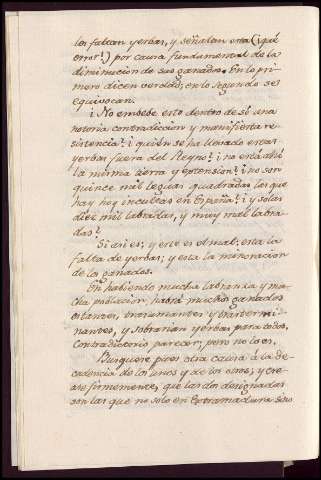 les faltan yerbas, y señalan esta (¡qué
error!) por causa fundamental de la
diminucion de sus ganados. En lo pri-
mero dicen verdad; en lo segundo se
equivocan.
¿No embebe esto dentro de sí una
notoria contradiccion y manifiesta re-
sistencia? ¿quién se ha llevado estas
yerbas fuera del Reyno? ¿no está ahí
la misma tierra y extension? ¿no son
quince mil leguas quadradas las que
hay hoy incultas en España? ¿y solas
diez mil labradas, y muy mal labra-
das?
Si así es; y este es el mal; esta la
falta de yerbas; y esta la minoracion
de los ganados.
En habiendo mucha labranza y mu-
cha poblacion, habrá muchos ganados
estantes, trasumantes y transtermi-
nantes, y sobrarian yerbas para todos.
Contradictorio parecen, pero no lo es.
Busquese pues otra causa á la de-
cadencia de los unos y de los otros; y cre-
ase firmemente, que las dos designadas
son las que no solo en Extremadura sino